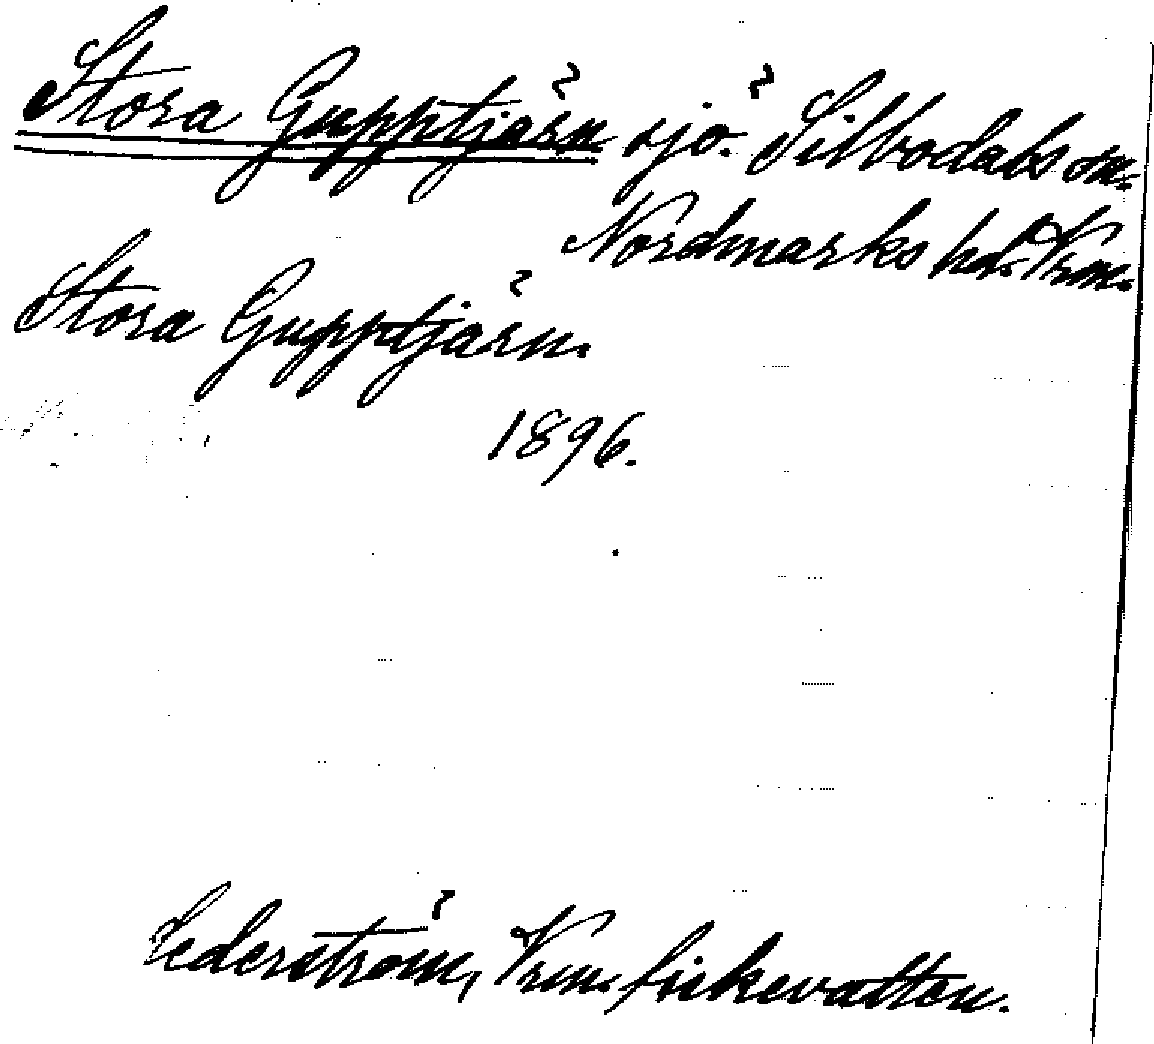 Stora Gupptjärn sjö. Silbodals sn.
Nordmarks hd. Vrm.
Stora Gupptjärn.
1896.
Cederström, Vrm. fiskevatten.